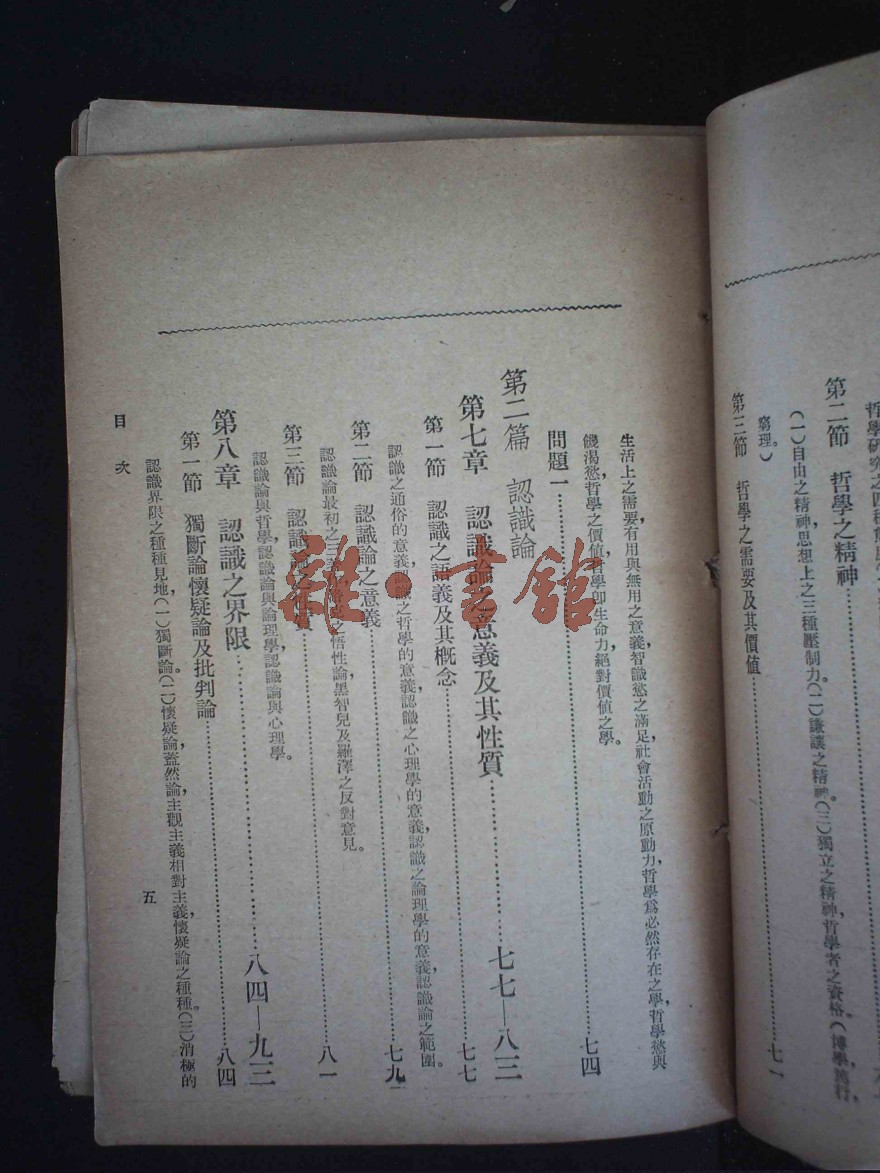 第二節 哲學之精神
(一)自由之精神,思想上之三種壓制力。(二)謙讓之精神。(三)獨立之精神,哲學者之資格。(博學篤行,
窮理。)
第三節 哲學之需要及其價値 七一
生活上之需要,有用與無用之意義,智識慾之滿足,社會活動之原動力,哲學爲必然存在之學,哲學慾與
饑渴慾,哲學之價値,哲學卽生命力,絕對價値之學。
問題一 七四
第二篇 認識論
第七章 認識論之意義及其性質 七七—八三
第一節 認識之語義及其槪念 七七
認識之通俗的意義,認識之哲學的意義,認識之心理學的意義,認識之論理學的意義,認識論之範圍。
第二節 認識論之意義 七九
認識論最初之三義,之悟性論,黑智兒及羅澤之反對意見。
第三節 認識論之性質 八一
認識論與哲學,認識論與論理學,認識論與心理學。
第八章 認識之界限 八四—九三
第一節 獨斷論懷疑論及批判論 八四
認識界限之種種見地,(一)獨斷論。(二)懷疑論,蓋然論,主觀主義,相對主義,懷疑論之種種。(三)消極的
目次
五
雜·書館